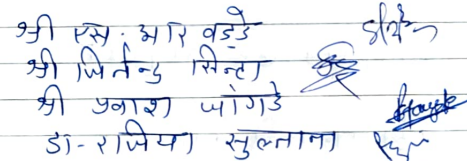 श्री एस. आर वड्डे
श्री जितेन्द्र सिन्हा
श्री प्रकाश जांगडे
डा- राजिया सुल्ताना